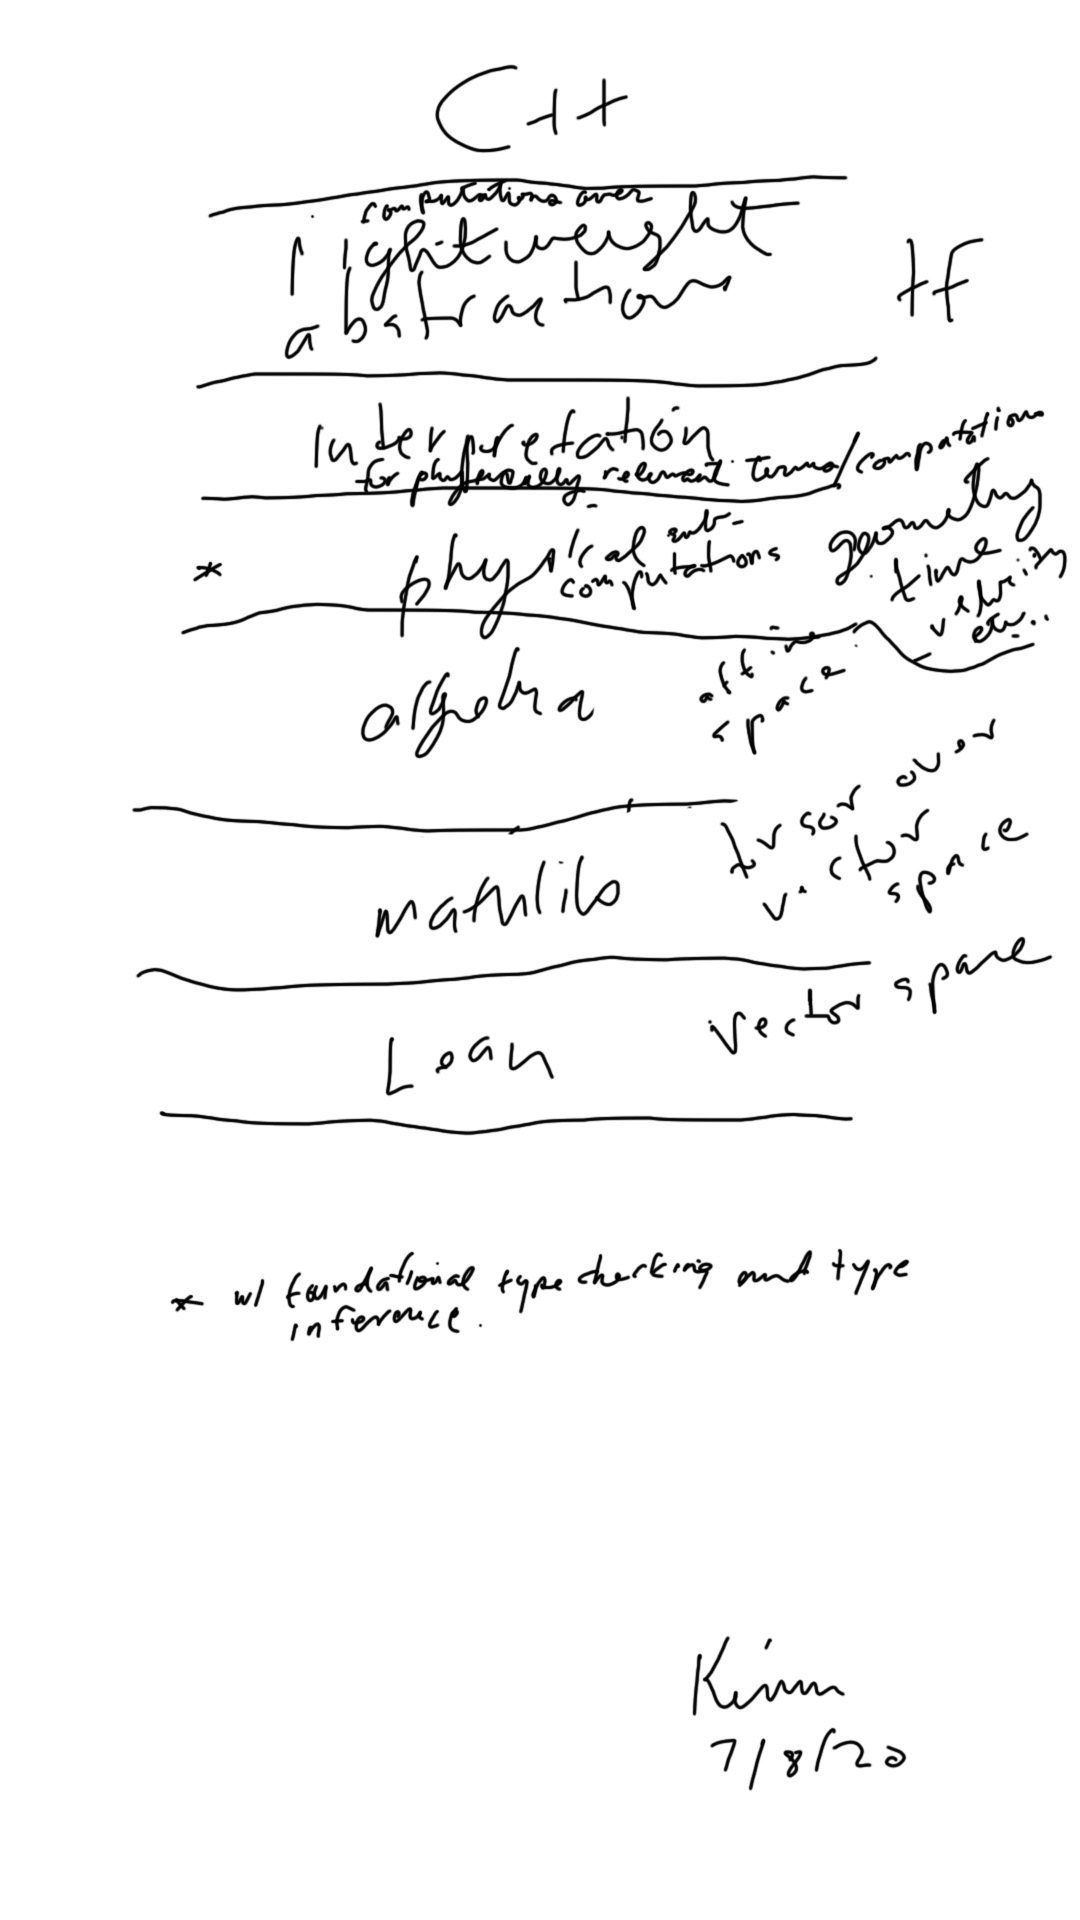 C++
computations over
lightweight
abstractions
tf
Interpretation
for physically relevant terms/computations
* physical sub-
computations
geometry
time
velocity
etc..
algebra
affine
space
torsor over
vector
space
mathlib
vector space
Lean
* w/ foundational type checking and type
inference.
7/8/20